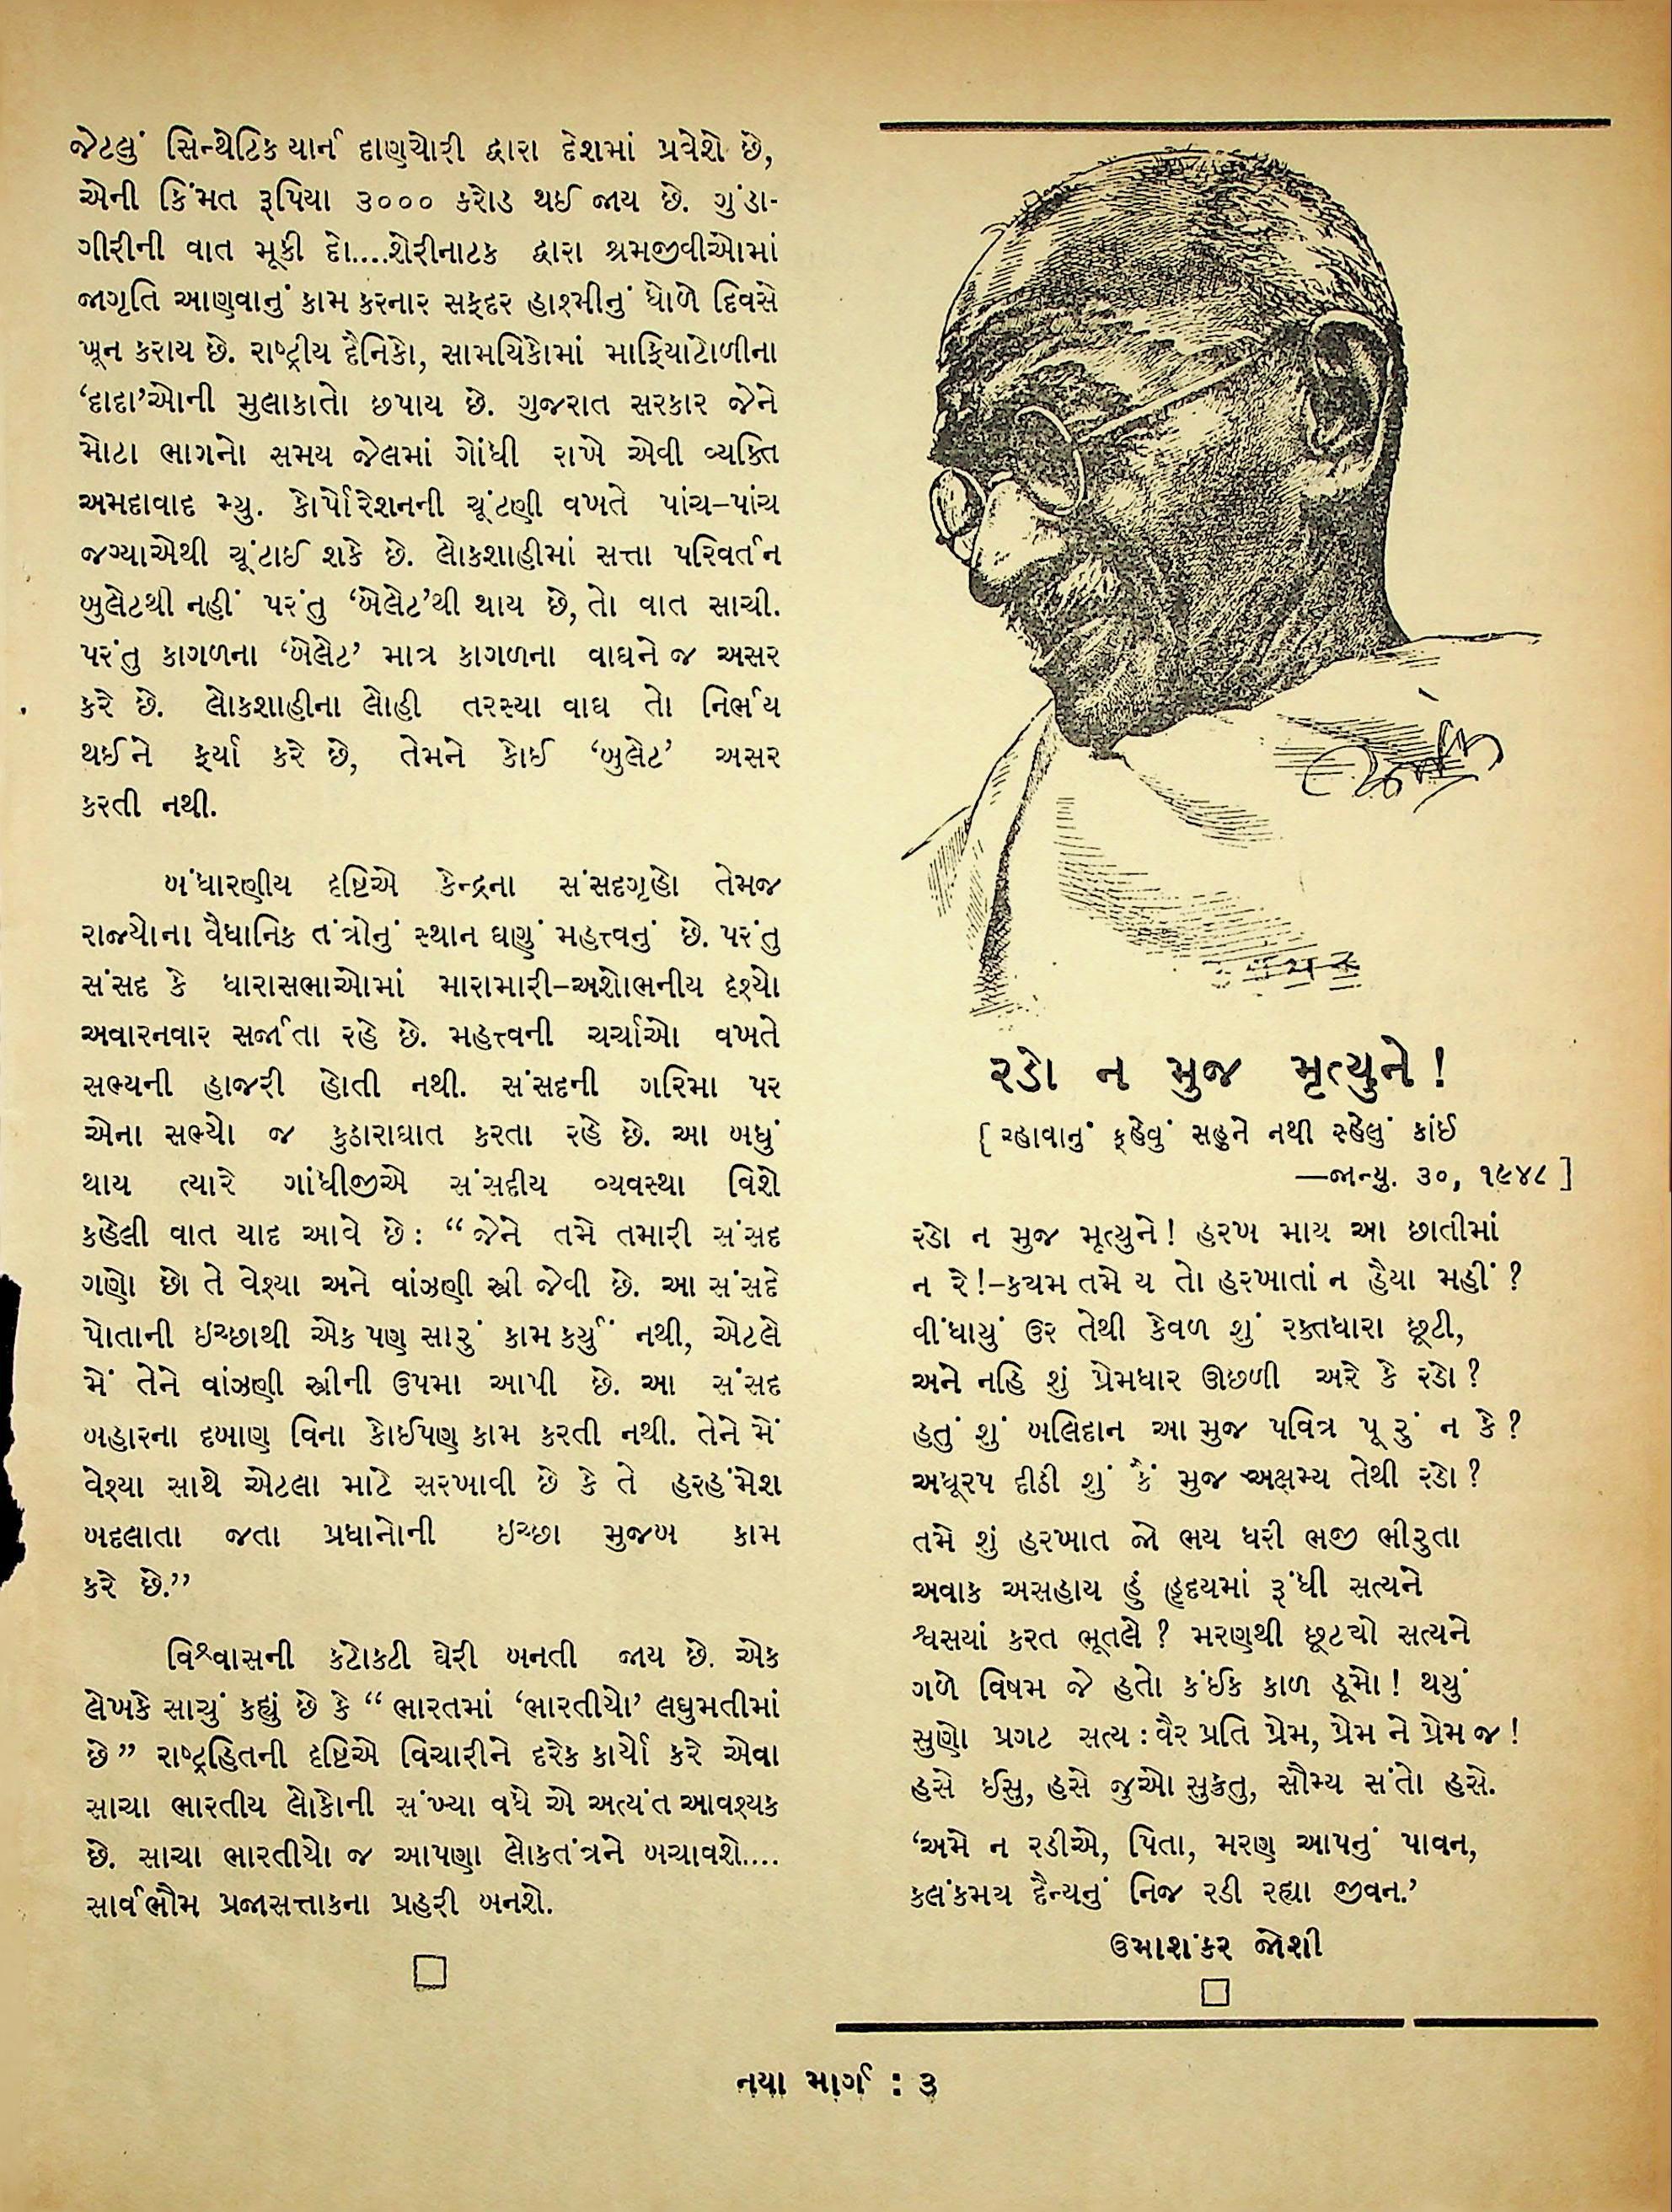 જેટલું સિન્થેટિક યાર્ન દાણચોરી દ્વારા દેશમાં પ્રવેશે છે,
એની કિંમત રૂપિયા ૩૦૦૦ કરોડ થઈ જાય છે. ગુંડા-
ગીરીની વાત મૂકી દો....શેરીનાટક દ્વારા શ્રમજીવીઓમાં
જાગૃતિ આણવાનું કામ કરનાર સફદર હાશ્મીનું ધોળે દિવસે
ખૂન કરાય છે. રાષ્ટ્રીય દૈનિકો, સામયિકોમાં માફિયાટોળીના
‘દાદા’ઓની મુલાકાતો છપાય છે. ગુજરાત સરકાર જેને
મોટા ભાગનો સમય જેલમાં ગોંધી રાખે એવી વ્યક્તિ
અમદાવાદ મ્યુ. કોર્પોરેશનની ચૂંટણી વખતે પાંચ–પાંચ
જગ્યાએથી ચૂંટાઈ શકે છે. લોકશાહીમાં સત્તા પરિવર્તન
બુલેટથી નહીં પરંતુ ‘બેલેટ’થી થાય છે, તો વાત સાચી.
પરંતુ કાગળના ‘બેલેટ’ માત્ર કાગળના વાઘને જ અસર
કરે છે. લોકશાહીના લોહી તરસ્યા વાઘ તો નિર્ભય
થઈને ફર્યા કરે છે, તેમને કોઈ ‘બુલેટ’ અસર
કરતી નથી.
બંધારણીય દૃષ્ટિએ કેન્દ્રના સંસદગૃહો તેમજ
રાજ્યોના વૈધાનિક તંત્રોનું સ્થાન ઘણું મહત્ત્વનું છે. પરંતુ
સંસદ કે ધારાસભાઓમાં મારામારી–અશોભનીય દૃશ્યો
અવારનવાર સર્જાતા રહે છે. મહત્ત્વની ચર્ચાઓ વખતે
સભ્યની હાજરી હોતી નથી. સંસદની ગરિમા પર
એના સભ્યો જ કુઠારાઘાત કરતા રહે છે. આ બધું
થાય ત્યારે ગાંધીજીએ સંસદીય વ્યવસ્થા વિશે
કહેલી વાત યાદ આવે છે: “જેને તમે તમારી સંસદ
ગણો છો તે વેશ્યા અને વાંઝણી સ્ત્રી જેવી છે. આ સંસદે
પોતાની ઇચ્છાથી એક પણ સારું કામ કર્યું નથી, એટલે
મેં તેને વાંઝણી સ્ત્રીની ઉપમા આપી છે. આ સંસદ
બહારના દબાણ વિના કોઈપણ કામ કરતી નથી. તેને મેં
વેશ્યા સાથે એટલા માટે સરખાવી છે કે તે હરહંમેશ
બદલાતા જતા પ્રધાનોની ઇચ્છા મુજબ કામ
કરે છે.”
વિશ્વાસની કટોકટી ઘેરી બનતી જાય છે. એક
લેખકે સાચું કહ્યું છે કે “ભારતમાં ‘ભારતીયો’ લઘુમતીમાં
છે” રાષ્ટ્રહિતની દૃષ્ટિએ વિચારીને દરેક કાર્યો કરે એવા
સાચા ભારતીય લોકોની સંખ્યા વધે એ અત્યંત આવશ્યક
છે. સાચા ભારતીયો જ આપણા લોકતંત્રને બચાવશે....
સાર્વભૌમ પ્રજાસત્તાકના પ્રહરી બનશે.
રડો ન મુજ મૃત્યુને!
[ ર્‌હાવાનું ક્‌હેવું સહુને નથી સ્હેલું કાંઈ
—જાન્યુ. ૩૦, ૧૯૪૮ ]
રડો ન મુજ મૃત્યુને! હરખ માય આ છાતીમાં
ન રે!–ક્યમ તમે ય તો હરખાતાં ન હૈયા મહીં?
વીંધાયું ઉર તેથી કેવળ શું રક્તધારા છૂટી,
અને નહિ શું પ્રેમધાર ઊછળી અરે કે રડો?
હતું શું બલિદાન આ મુજ પવિત્ર પૂરું ન કે?
અધૂરપ દીઠી શું કૈં મુજ અક્ષમ્ય તેથી રડો?
તમે શું હરખાત જો ભય ધરી ભજી ભીરુતા
અવાક અસહાય હું હૃદયમાં રૂંધી સત્યને
શ્વસયાં કરત ભૂતલે? મરણથી છૂટયો સત્યને
ગળે વિષમ જે હતો કંઈક કાળ ડૂમો! થયું
સુણો પ્રગટ સત્ય: વૈર પ્રતિ પ્રેમ, પ્રેમ ને પ્રેમ જ!
હસે ઈસુ, હસે જુઓ સુક્રતુ, સૌમ્ય સંતો હસે.
‘અમે ન રડીએ, પિતા, મરણ આપનું પાવન,
કલંકમય દૈન્યનું નિજ રડી રહ્યા જીવન.’
ઉમાશંકર જોશી
નયા માર્ગ : ૩